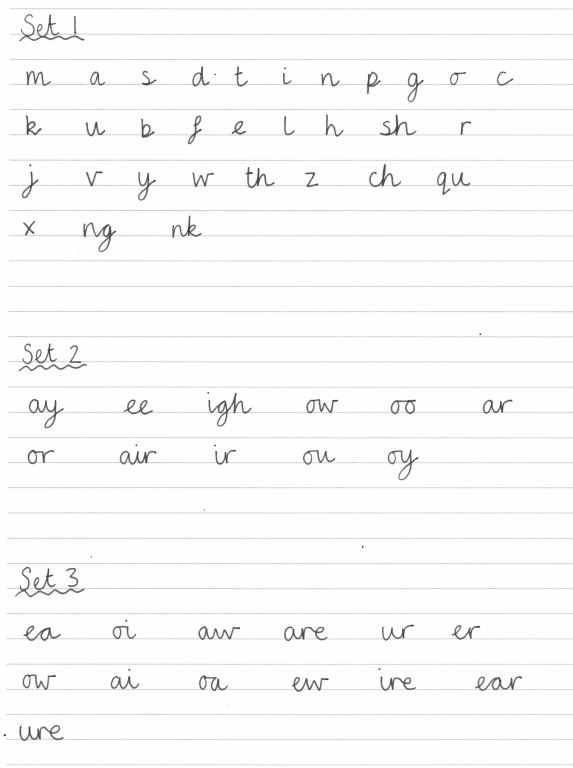 Set 1
m a s d t i n p g o c
k u b f e l h sh r
j v y w th z ch qu
x ng nk
Set 2
ay ee igh ow oo ar
or air ir ou oy
Set 3
ea oi aw are ur er
ow ai oa ew ire ear
ure